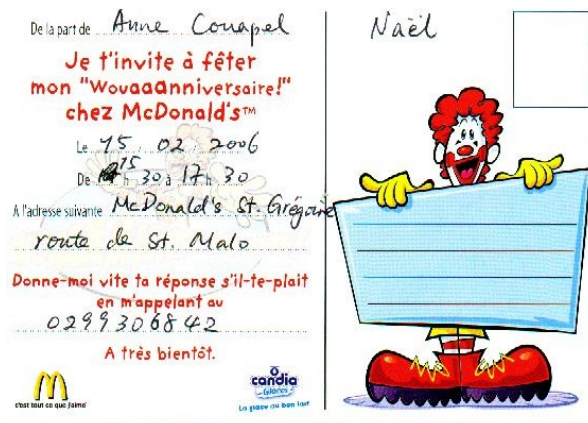 De la part de Anne Couapel
Je t'invite à fêter
mon "Wouaaanniversaire!"
chez McDonald's™
Le 15 02 2006
De 15 h 30 à 17 h 30
A l'adresse suivante McDonald's St. Grégoire
route de St. Malo
Donne-moi vite ta réponse s'il-te-plait
en m'appelant au
0299306842
A très bientôt.
c'est tout ce que j'aime
candia
Glaces
La glace au bon lait
Naël